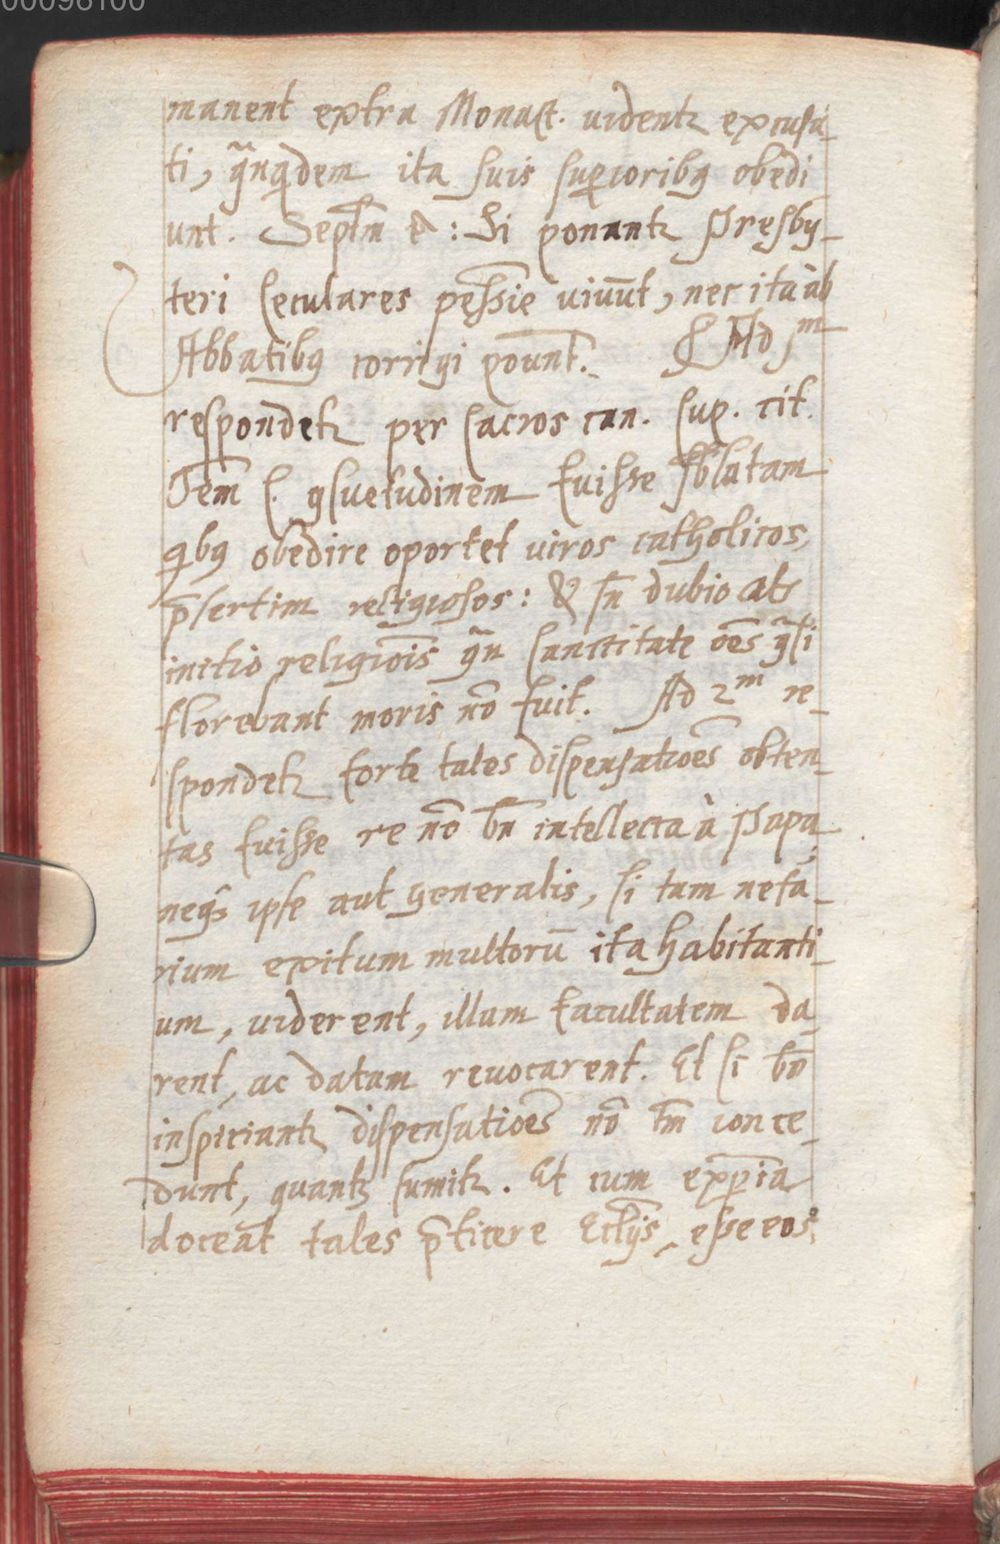 00098100
manent extra Monast. uidentr excusa-
ti, qn̄qdem ita suis superioribꝰ obedi
unt. Sept̄m &: Si ponantr Presby-
teri seculares pessīe uiuūt, nec ita ab
Abbatibꝰ corrigi pōunt. Ad jm
respondetr per sacros can. sup. cit.
Item ꝯsuetudinem fuisse sblatam
qbꝰ obedire oportet uiros catholicos,
p̄sertim religiosos: & in dubio ab
initio religiōis qn̄ sanctitate ōes qsi
florebant moris nō fuit. Ad 2m re-
spondetr forte tales dispensatioēs obten-
tas fuisse re nō bn̄ intellecta à Papa
neqȝ ipse aut generalis, si tam nefa-
rium exitum multorū ita habitanti-
um, uiderent, illam facultatem da
rent, ac datam reuocarent. Et si bn̄
inspiciantr dispensatioēs nō tm̄ conce-
dunt, quantȝ sumitr. Et cum exp̄ia
doceat tales p̄ficere Ecclijs, esse eos